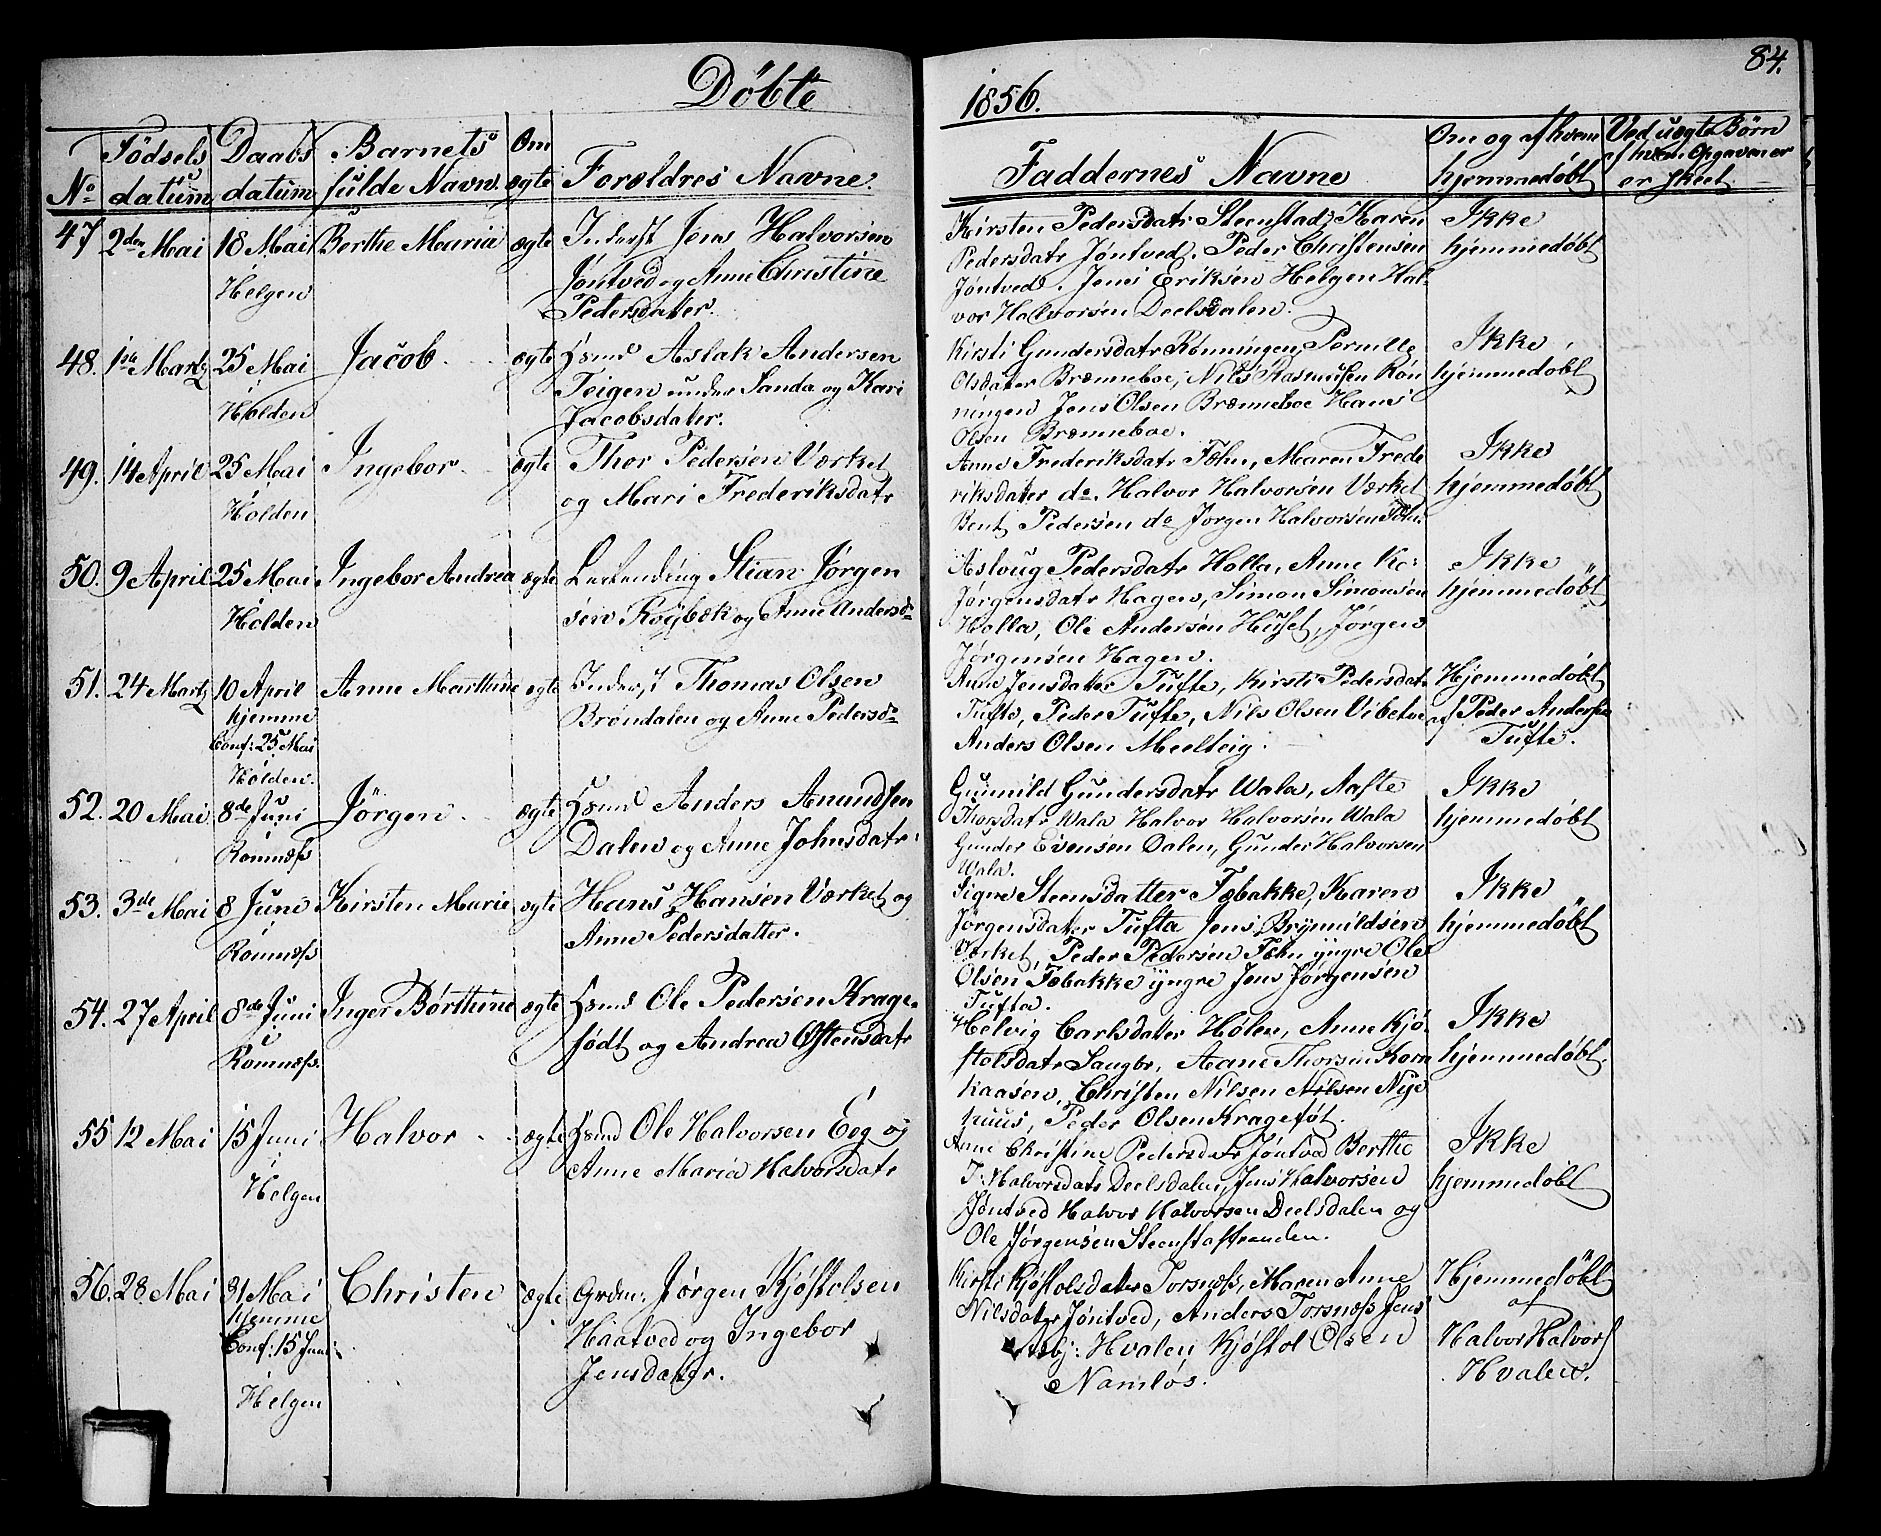 Döbte
1856.
84.
No
Födsels datum
Daabs datum
Barnets fulde Navn.
Om ægte
Forældres Navne.
Faddernes Navne
Om og af hvem hjemmedöbt
Ved uægte Börn af hvem Opgaven er er skeet
47 2den Mai 18 Mai Berthe Maria ægte Inderst Jens Halvorsen
Helgen Jöntved og Anne Christine
Pedersdatter.
Kirsten Pedersdatr Steenstad, Karen
Pedersdatr Jöntved. Peder Christensen
Jöntved. Jens Eriksen Helgen Hal-
vor Halvorsen Deelsdalen.
Ikke
hjemmedöbt
48. 1ste Martz 25 Mai Jacob ægte Hsmd Aslak Andersen
Holden Teigen under Sanda og Kari
Jacobsdater.
Kirsti Gundersdatr Rönningen, Pernille
Olsdater Brænneboe, Nils Rasmusen Rön
ningen Jens Olsen Brænneboe Hans
Olsen Brænneboe.
Ikke
hjemmedöbt
49. 14 April 25 Mai Ingebor ægte Thor Pedersen Værket
Holden og Mari Frederiksdatr
Anne Frederiksdatr Fæhn, Maren Frede
riksdater do. Halvor Halvorsen Værket
Bent Pedersen do Jörgen Halvorsen
Ikke
hjemmedöbt
50. 9 April 25 Mai Ingebor Andrea ægte Stian Jörgen
Holden sen Röybæk og Anne Andersd
Aslaug Pedersdatr Holla, Anne Ka:
Jörgensdatr Hagen, Simon Simonsen
Holla, Ole Andersen Huset, Jörgen
Jörgensen Hagen.
Ikke
hjemmedöbt
51. 24 Martz 10 April Anne Marthine ægte Inderst Thomas Olsen
hjemme Bröndalen og Anne Pedersd
Conf: 25 Mai
Holden.
Anne Jensdatter Tufte, Kirsti Pedersdatr
Tufte, Peder Tufte, Nils Olsen Vibetoe
Anders Olsen Meelteig.
Hjemmedöbt
af Peder Andersen
Tufte.
52. 20 Mai 8de Juni Jörgen ægte Hsmd Anders Amundsen
Romnæss Dalen og Anne Johnsdatr.
Gunnild Gundersdatr Wala, Aaste
Thorsdatr Wala Halvor Halvorsen Wala
Gunder Evensen Dalen, Gunder Halvorsen
Wala.
Ikke
hjemmedöbt
53. 3de Mai 8 June Kirsten Marie ægte Hans Hansen Værket og
Romnæss Anne Pedersdatter.
Signe Steensdatter Fæbakke, Karen
Jörgensdater Tufta Jens Brynnildsen
Værket, Peder Pedersen Fæhn yngre Ole
Olsen Fæbakke yngre Jens Jörgensen
Tufta.
Ikke
hjemmedöbt
54. 27 April 8de Juni Inger Börthine ægte Hsmd Ole Pedersen Krage-
Romnæss. födt og Andrea Östensdatr
Helvig Carlsdatter Holen, Anne Kjö-
stolsdatr Saugbr, Aane Thorsen Korn
kaasen, Christen Nilsen Nilsen Nye
huus, Peder Olsen Krageföt.
Ikke
hjemmedöbt.
55 12 Mai 15 Juni Halvor ægte Hsmd Ole Halvorsen Eeg og
Helgen Anne Maria Halvorsdatr
Anne Christine Pedersdatr Jöntved Berthe
J: Halvorsdatr Deelsdalen, Jens Halvorsen
Jöntved Halvor Halvorsen Deelsdalen og
Ole Jörgensen Steenstastranden.
Ikke
hjemmedöbt
56. 28 Mai 31 Mai Christen ægte Grdm: Jörgen Kjöstolsen
hjemme Haatved og Ingebor
Conf: 15 Juni Jensdater.
Helgen
Kirsti Kjöstolsdater Torsnæss, Maren Anne
Nilsdater Jöntved, Anders Torsnæss Jens
Hvalen Kjöstol Olsen
Namlös.
Hjemmedöbt
af
Halvor Halvors
Hvalen.